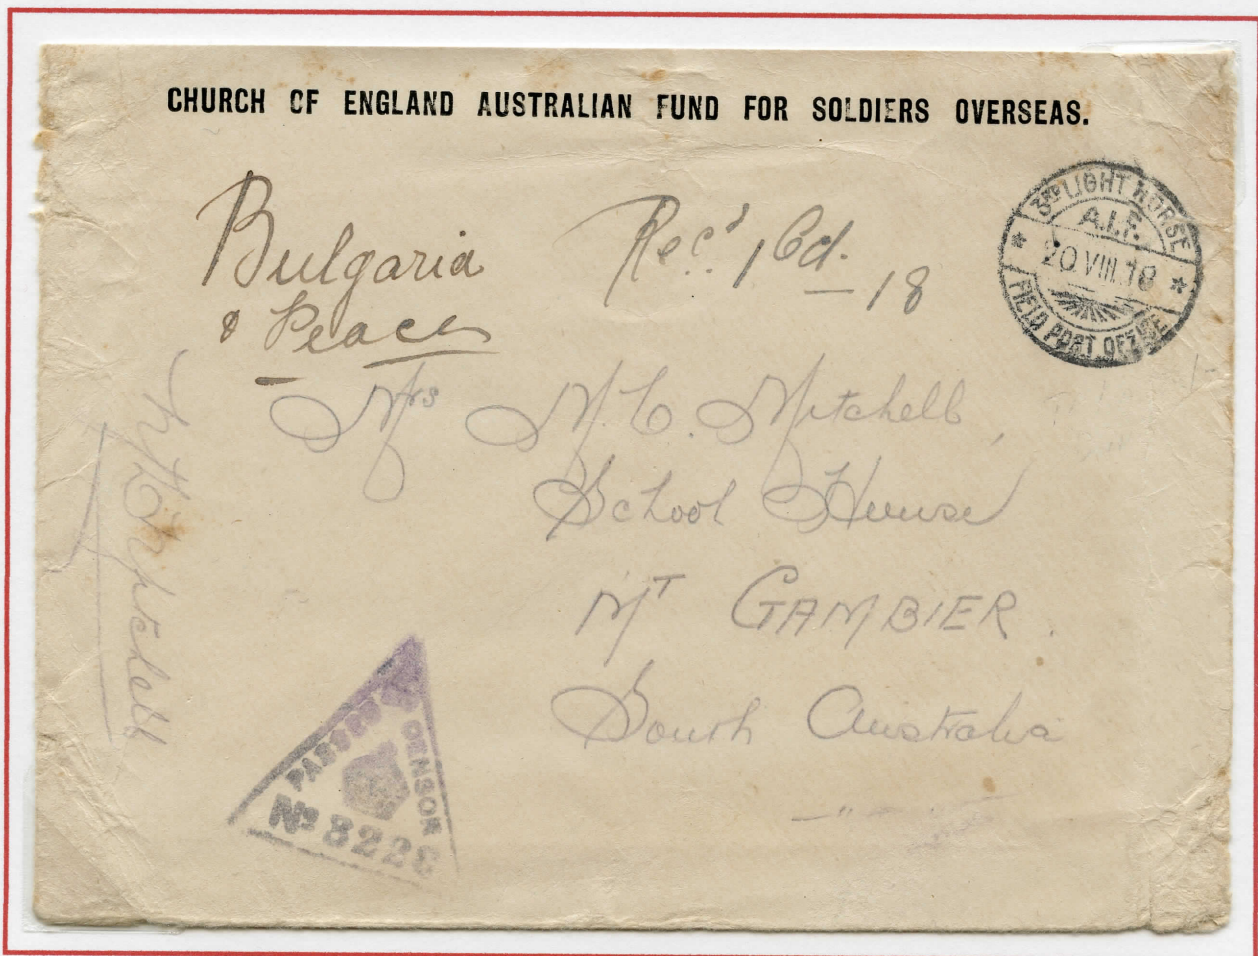 CHURCH OF ENGLAND AUSTRALIAN FUND FOR SOLDIERS OVERSEAS.
Bulgaria
& Peace
Rec'd
18
3RD LIGHT HORSE
A.I.F.
20 VIII.18
FIELD POST OFFICE
Mrs M.C. Mitchell,
School House
MT GAMBIER.
South Australia
Mitchell
PASSED CENSOR
No 3229